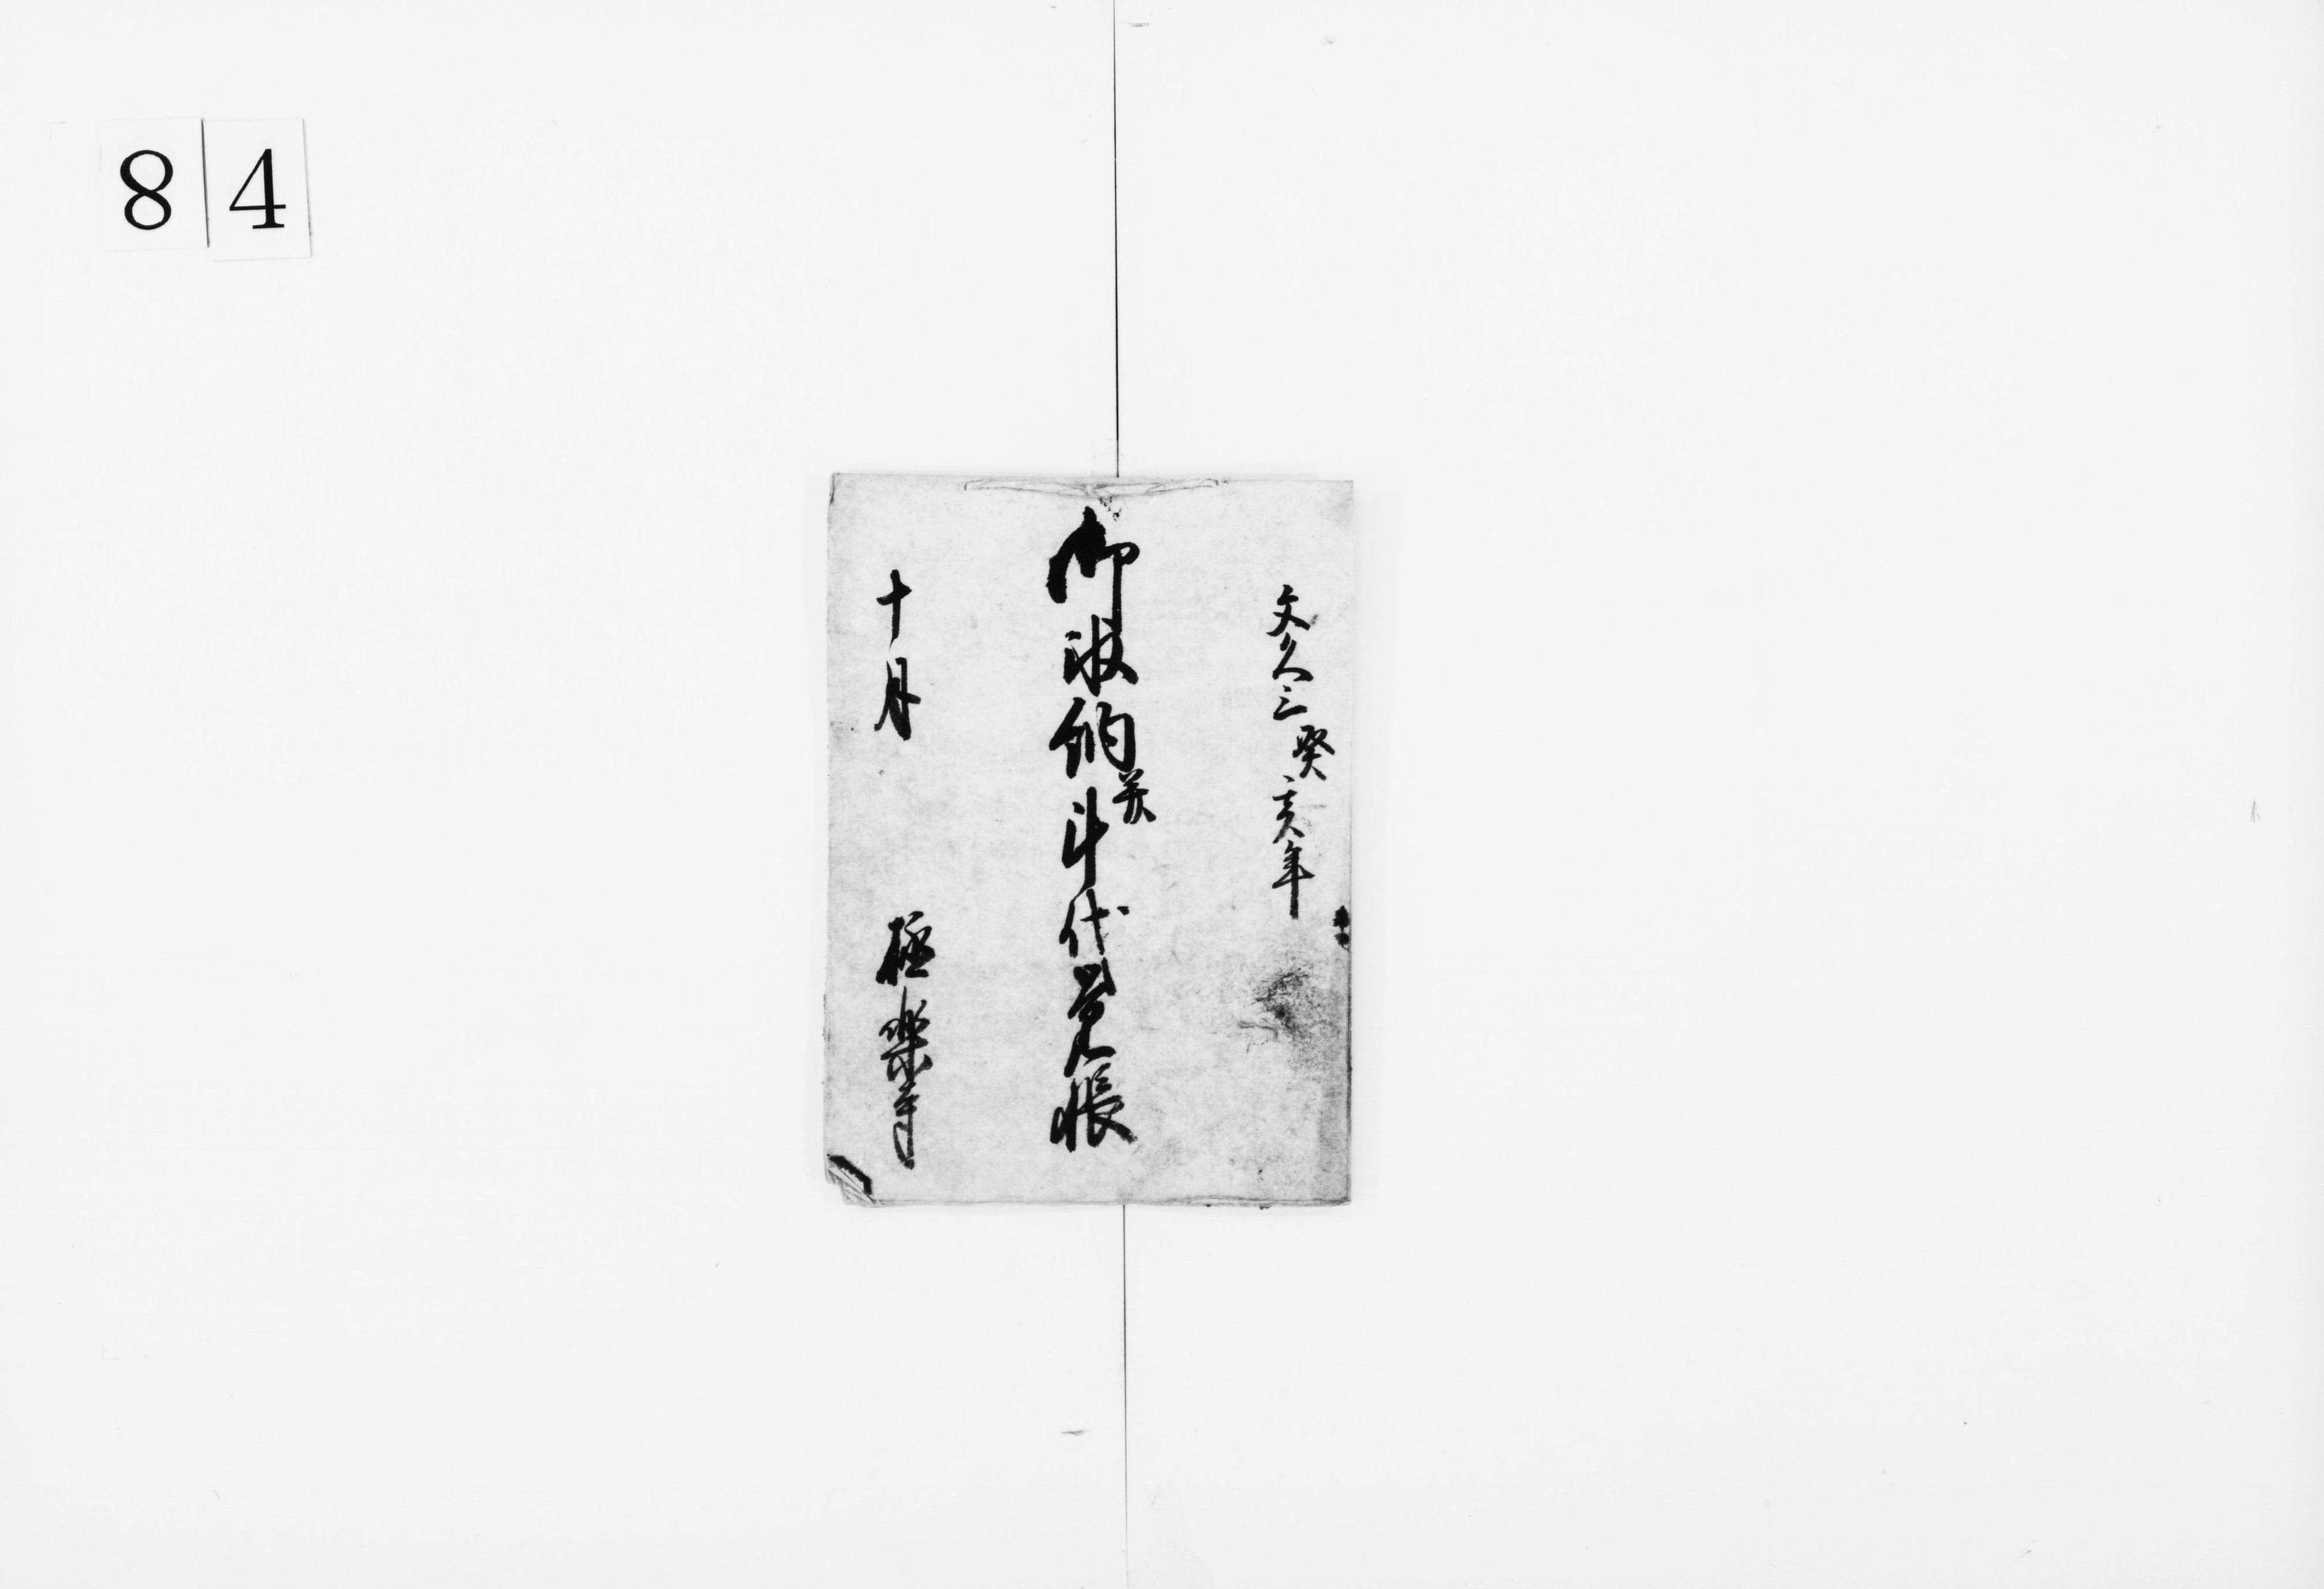 84
文久三癸亥年
御収納并斗代覚帳
十月
極楽寺